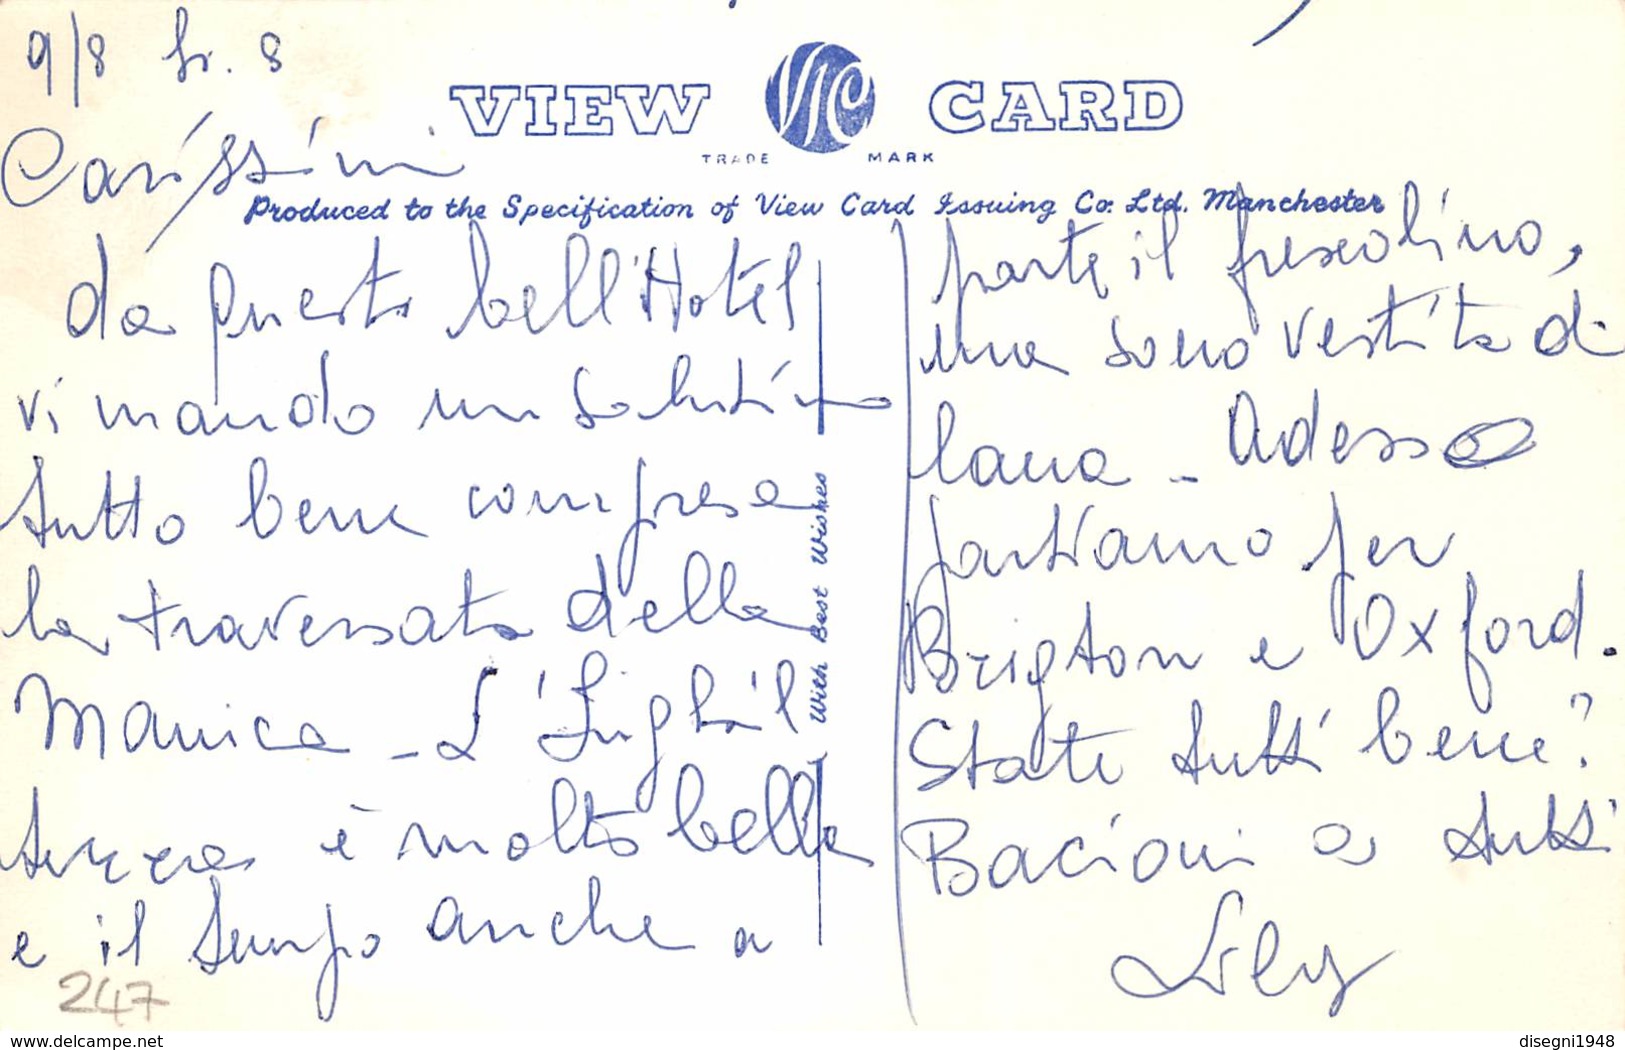 9/8 h. 8
VIEW VIC CARD
TRADE MARK
Produced to the Specification of View Card Issuing Co. Ltd. Manchester
Carissimi
da questo bell'Hotel
vi mando un salutino
tutto bene compresa
la traversata della
Manica - L'Inghil
terra è molto bella
e il tempo anche a
parte il freschino,
ma sono vestita di
lana - Adesso
partiamo per
Brigton e Oxford.
State tutti bene?
Bacioni a tutti
Lily
With Best Wishes
247
delcampe.net
disegni1948